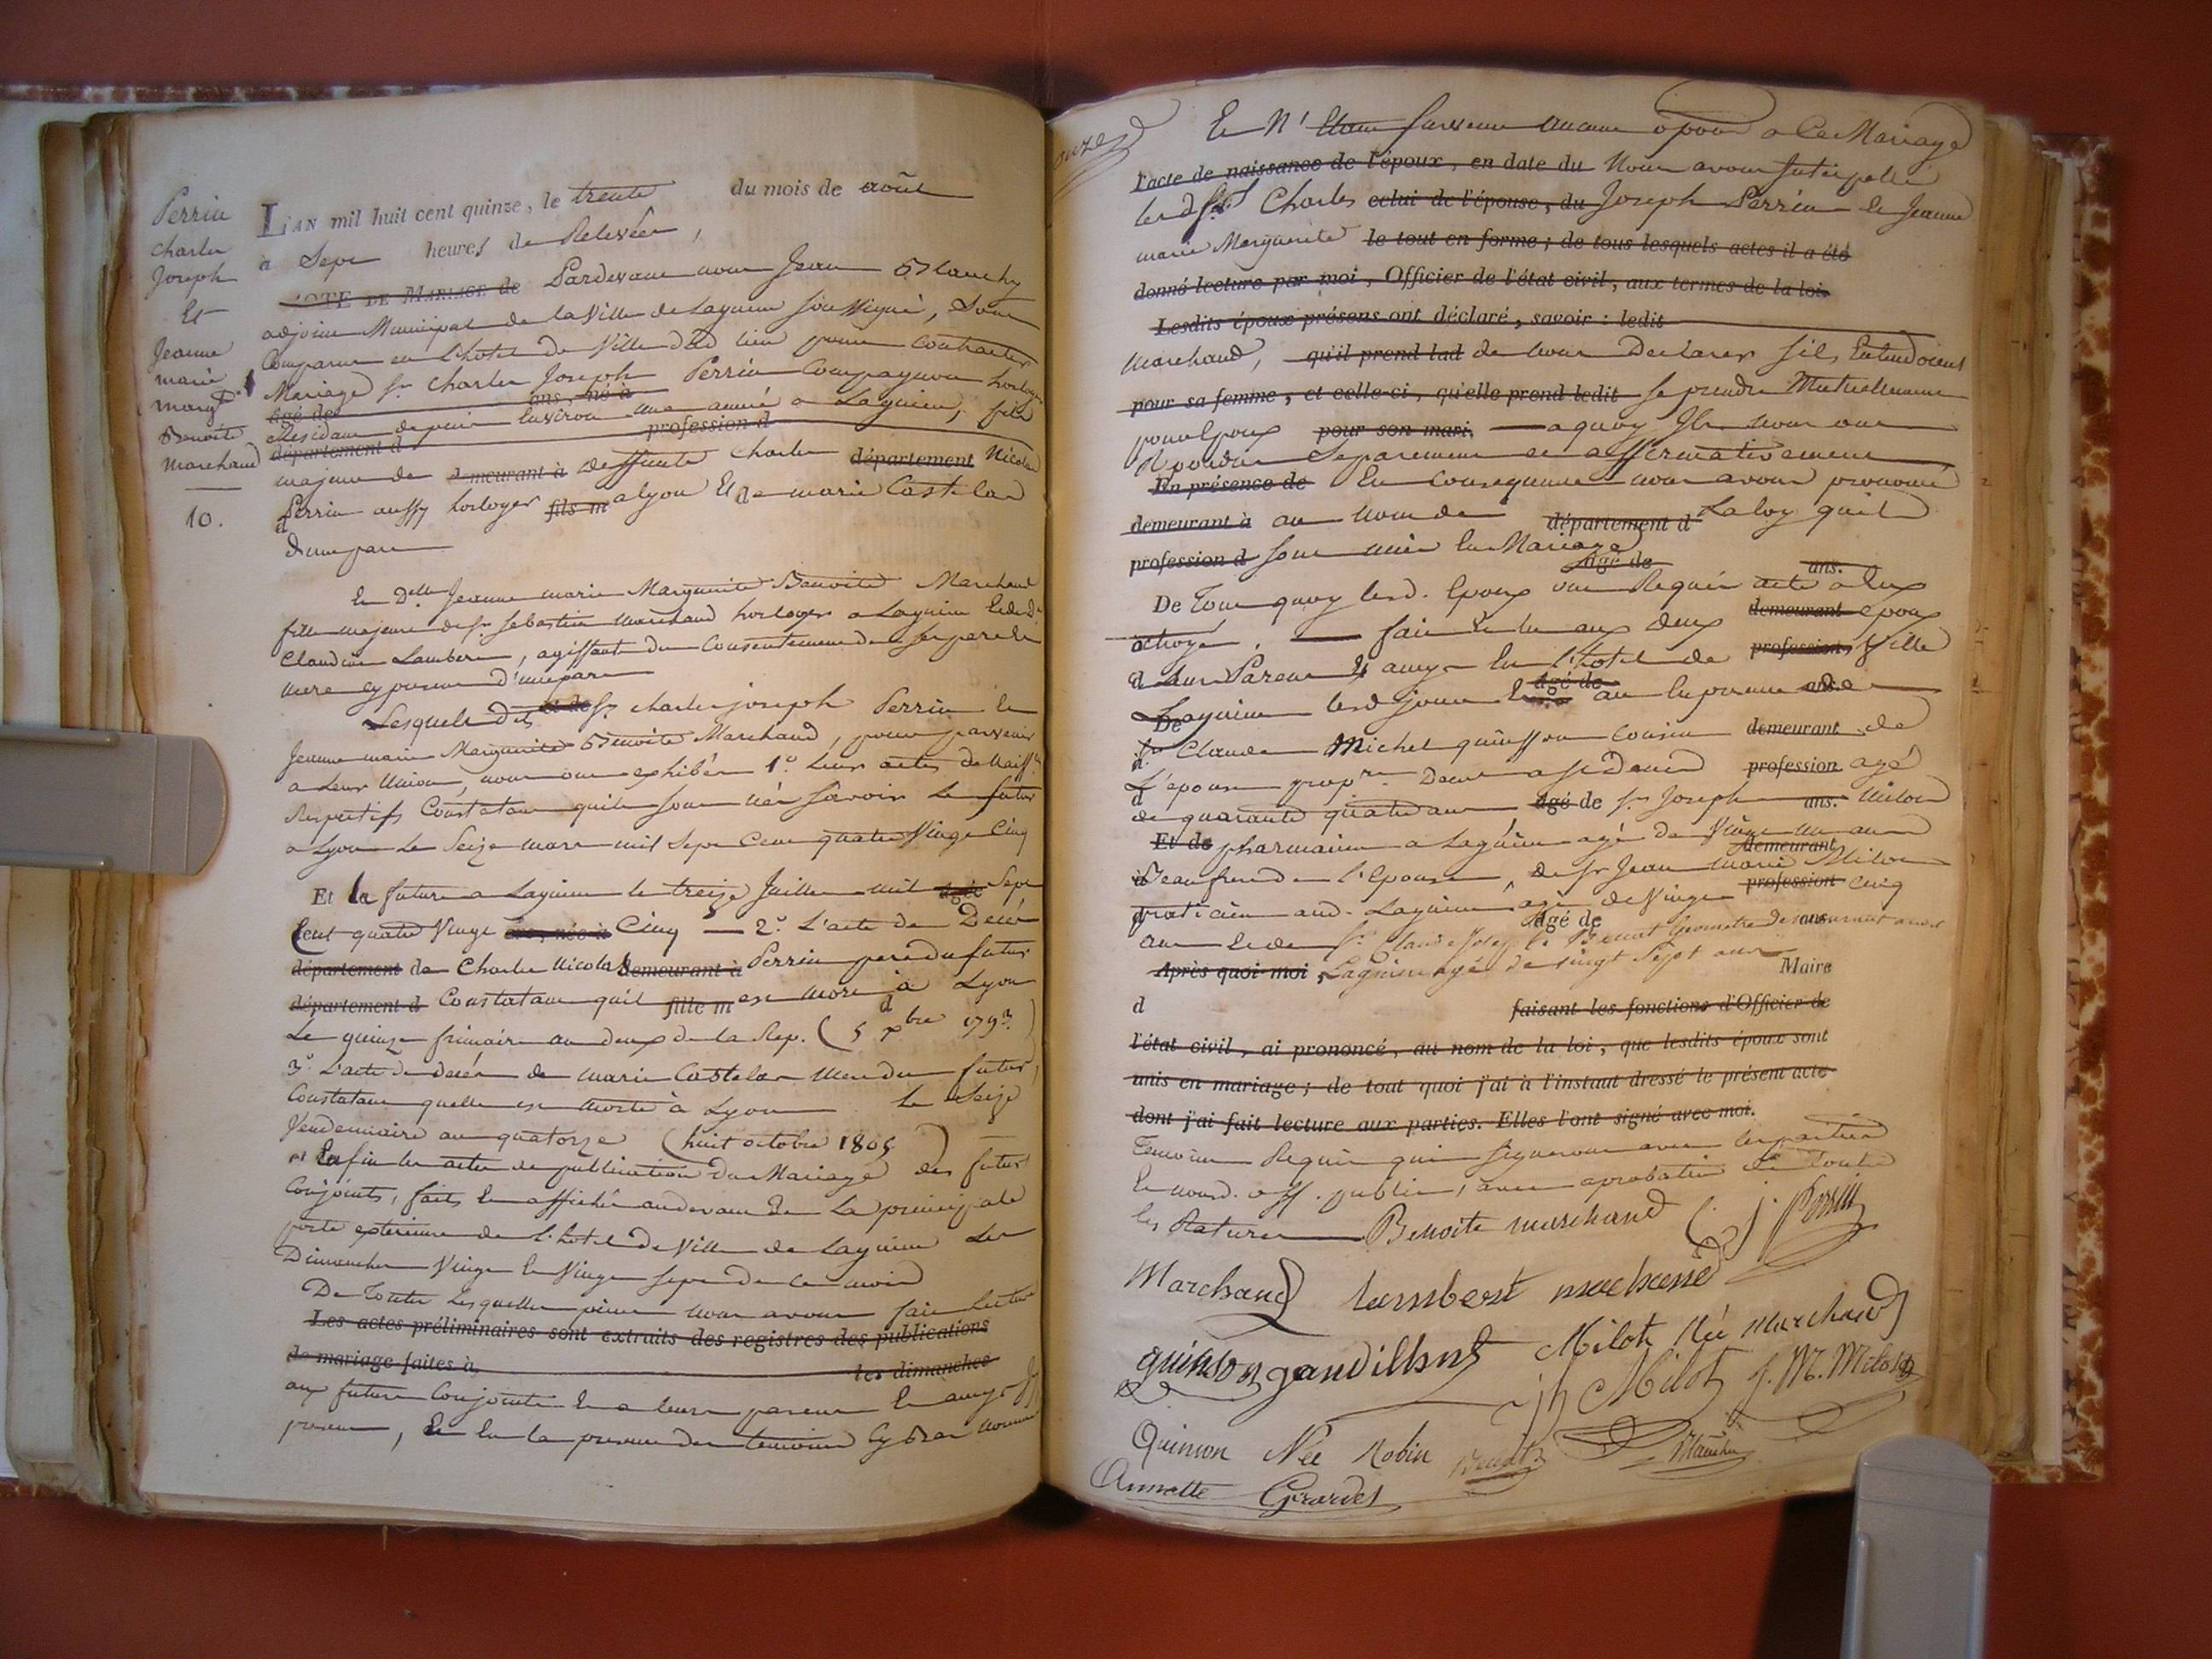 Perrin
Charles
Joseph
Et
Jeanne
marie
marg.te
Benoite
Marchand
10.
L'AN mil huit cent quinze, le trente du mois de août
à Sept heures de Relevée,
ACTE DE MARIAGE de Pardevant nous Jean Blanchy
adjoint Municipal de la Ville de Lagnieu soussigné, Sont
Comparu en l'hotel de Ville dud lieu pour Contracter
Mariage Sr Charles Joseph Perrin Compagnon horloger
âgé de ans, né à
Residant depuis Environ une année a Lagnieu, fils
département d profession d
majeur de demeurant à deffunts Charles département Nicolas
Perrin aussy horloger fils m a lyon Et de marie Castelan
d
d'une part
Et Delle Jeanne marie Marguerite Benoite Marchand
fille majeure de Sr Sebastien Marchand horloger a Lagnieu Et de De
Claudine Lambert, agissant du Consentement de ses pere et
mere cy presents d'une part
Lesquels dits et de Sr Charles joseph Perrin et
Jeanne marie Marguerite Benoite Marchand, pour parvenir
a leur Union, nous ont exhibés 1° Leurs actes de Naiss.ce
Respectifs Constatant quils sont nés sçavoir Le futur
a Lyon Le Seize mars mil Sept Cent quatre Vingt Cinq
Et la future a Lagnieu le treize Juillet mil âgée Sept
Cent quatre Vingt ans, née à Cinq — 2° L'acte de Décés
département de Charles Nicolas demeurant à Perrin pere du futur
département d Constatant quil fille m est mort à Lyon
d
Le quinze frimaire an deux de la Rep. (5 Xbre 1793)
3° L'acte de décés de marie Castelan Mere du futur,
Constatant quelle est morte à Lyon Le Seize
Vendemiaire an quatorze (huit octobre 1805)
et Enfin les actes de publication du Mariage des futurs
Conjoints, faits Et affichés audevant de La principale
porte exterieure de l'hotel de Ville de Lagnieu Les
Dimanches Vingt Et Vingt sept de ce mois
De Toutes Lesquelles pieces nous avons fait lecture
Les actes préliminaires sont extraits des registres des publications
de mariage faites à les dimanches
aux futurs Conjoints Et a leurs parens Et amys
presens, Et En la presence des temoins Cy bas nommés
onze
Et N'Etant survenu aucune opposon a Ce Mariage
l'acte de naissance de l'époux, en date du Nous avons Interpellé
lesd Srs Charles celui de l'épouse, du Joseph Perrin et Jeanne
marie Marguerite le tout en forme; de tous lesquels actes il a été
donné lecture par moi, Officier de l'état civil, aux termes de la loi.
Lesdits époux présens ont déclaré, savoir : ledit
Marchand, qu'il prend lad de Nous Declarer Sils Entendoient
pour sa femme, et celle-ci, qu'elle prend ledit se prendre Mutuellement
pour Epoux pour son mari. — a quoy Ils nous ont
Repondu Separement et affirmativement
En présence de En Consequence nous avons prononcé
demeurant à au Nom de département d La loy quils
profession d sont unis En Mariage
âgé de ans.
De Tout quoy lesd. Epoux ont Requis acte a Eux
demeurant
octroyé. — fait Et lu aux deux epoux
profession
d a leurs Parens Et amys En l'hotel de Ville
âgé de ans.
Lagnieu lesd jour Et an En presence de
De
Sr Claude Michel quinson Cousin demeurant de
d
L'epouse propre Demt a St Denis profession agé
d
de quarante quatre ans âgé de Sr Joseph ans. Milot
Et de pharmacien a Lagnieu agé de Vingt un ans
demeurant
Beaufrere de l'Epouse, de Sr Jean Marie Milot
profession
praticien aud. Lagnieu agé de Vingt cinq
d âgé de ans
ans Et de Sr Claude Joseph Benoit Geometre demeurant aud
Après quoi moi, Lagnieu agé de vingt Sept ans Maire
d faisant les fonctions d'Officier de
l'état civil, ai prononcé, au nom de la loi, que lesdits époux sont
unis en mariage; de tout quoi j'ai à l'instant dressé le présent acte
dont j'ai fait lecture aux parties. Elles l'ont signé avec moi.
Temoins Requis qui signeront avec les parties
Et nousd. off. public, avec aprobation de Toutes
les Ratures Benoite marchand C. j. Perrin
Marchand lambert marchand
quinson gaudillhut Milot Née marchand
jh Milot J. M. Milot
Quinson Née Robin Benoit Blanchy
Annette Girardet